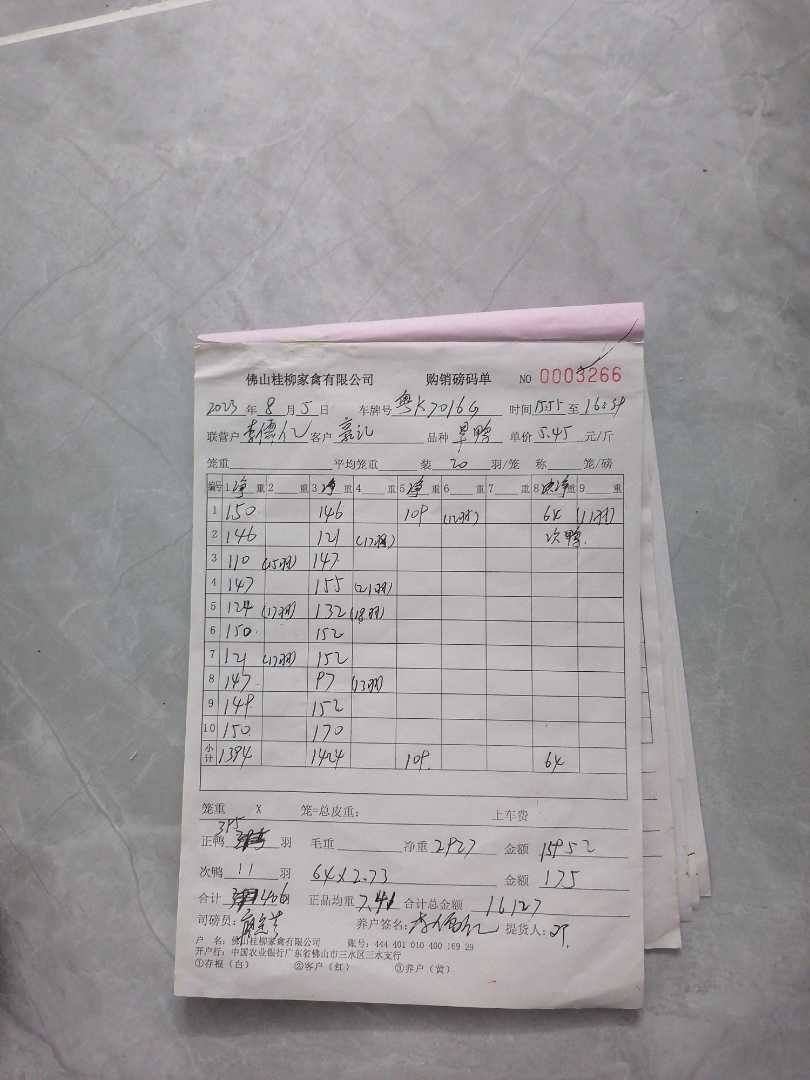 佛山桂柳家禽有限公司 购销磅码单 NO 0003266
2023年8月5日 车牌号 粤K7016G 时间15:55至16:54
联营户 李德亿 客户 品种 旱鸭 单价5.45元/斤
笼重 平均笼重 装20羽/笼 称 笼/磅
编号 1净重 2 重 3净重 4 重 5净重 6 重 7 重 8 净重 9 重
1 150 146 109 (12羽) 64 (11羽)
2 146 121 (17羽) 次鸭
3 110 (15羽) 147
4 147 155 (21羽)
5 124 (17羽) 132 (18羽)
6 150 152
7 121 (17羽) 152
8 147 97 (13羽)
9 149 152
10 150 170
小计 1394 1424 109 64
笼重 X 笼=总皮重: 上车费
正鸭 395 羽 毛重 净重2927 金额 15952
次鸭 11 羽 64×2.73 金额 175
合计 406 正品均重7.41 合计总金额 16127
司磅员: 养户签名: 提货人: 邓
户 名: 佛山桂柳家禽有限公司 账号: 444 401 010 400 169 29
开户行: 中国农业银行广东省佛山市三水区三水支行
①存根(白) ②客户(红) ③养户(黄)